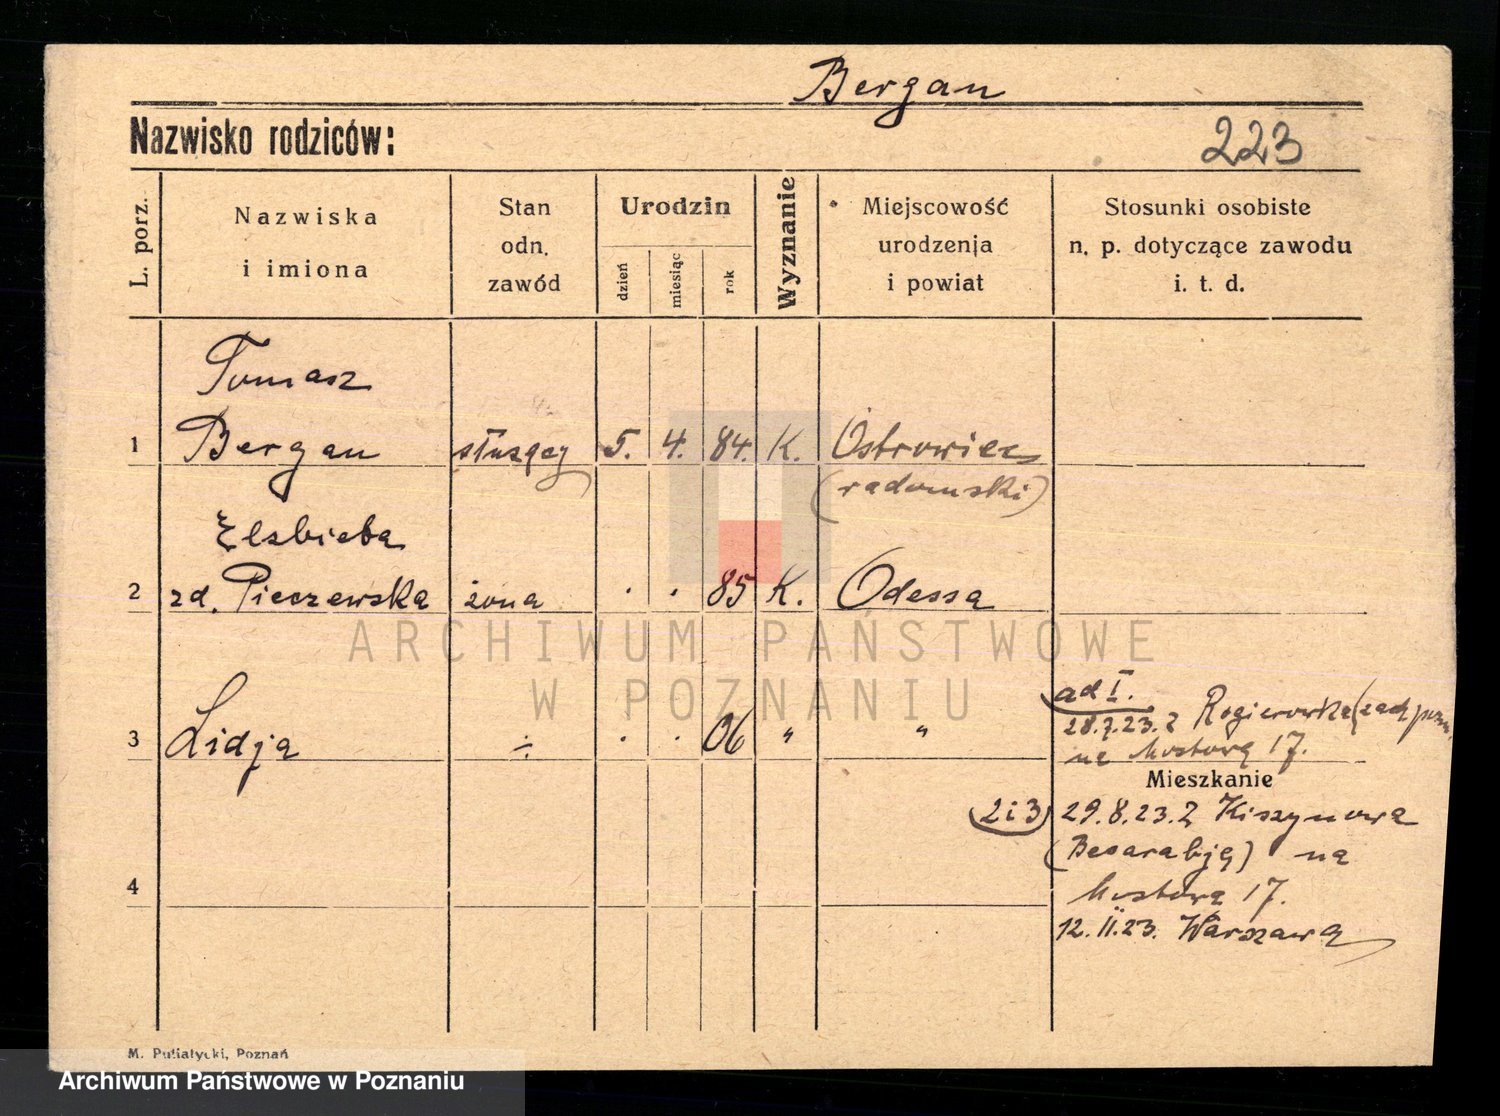 Bergan
Nazwisko rodziców:
223
L. porz.
Nazwiska
i imiona
Stan
odn.
zawód
Urodzin
dzień
miesiąc
rok
Wyznanie
Miejscowość
urodzenia
i powiat
Stosunki osobiste
n. p. dotyczące zawodu
i. t. d.
Tomasz
1 Bergan służący 5. 4. 84. K. Ostrowiec
(radomski)
Elżbieta
2 zd. Pieczewska żona . . 85 K. Odessa
ARCHIWUM PAŃSTWOWE
W POZNANIU
ad I.
28.7.23. z Rogierówka (zach pozn.
3 Lidja ÷ . . 06 " "
na Mostowa 17.
Mieszkanie
2 i 3) 29.8.23. z Kiszynowa
(Besarabją) na
4
Mostowa 17.
12.11.23. Warszawa
M. Putiatycki, Poznań
Archiwum Państwowe w Poznaniu